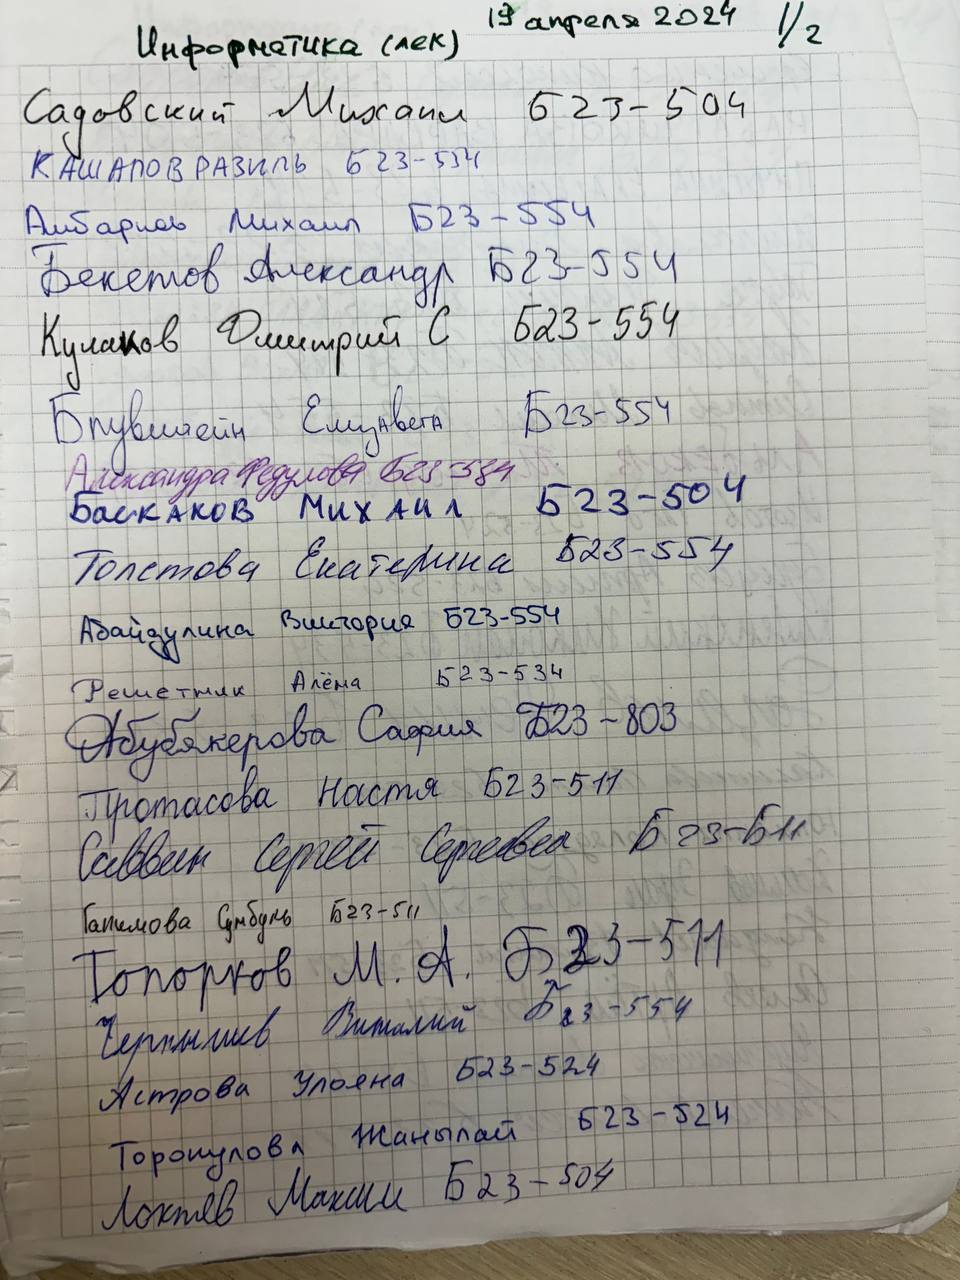 19 апреля 2024 1/2
Информатика (лек)
Садовский Михаил Б23-504
КАШАПОВ РАЗИЛЬ Б23-534
Михаил Б23-554
Бекетов Александр Б23-554
Кулаков Дмитрий С Б23-554
Елизавета Б23-554
Александра Федулова Б23-534
Баскаков Михаил Б23-504
Толстова Екатерина Б23-554
Абайдулина Виктория Б23-554
Решетник Алёна Б23-534
Абубякерова Сафия Б23-803
Протасова Настя Б23-511
Саввин Сергей Сергеевич Б23-Б11
Сумбуль Б23-511
Топорков М. А. Б23-511
Чернышев Виталий Б23-554
Астрова Ульяна Б23-524
Торокулова Жанылай Б23-524
Локтев Максим Б23-504